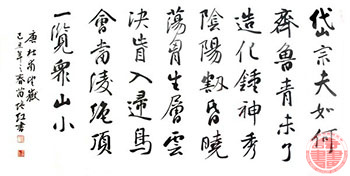 岱宗夫如何
齊魯青未了
造化鍾神秀
陰陽割昏曉
蕩胸生層雲
決眥入歸鳥
會當凌絕頂
一覽眾山小
唐杜甫望嶽